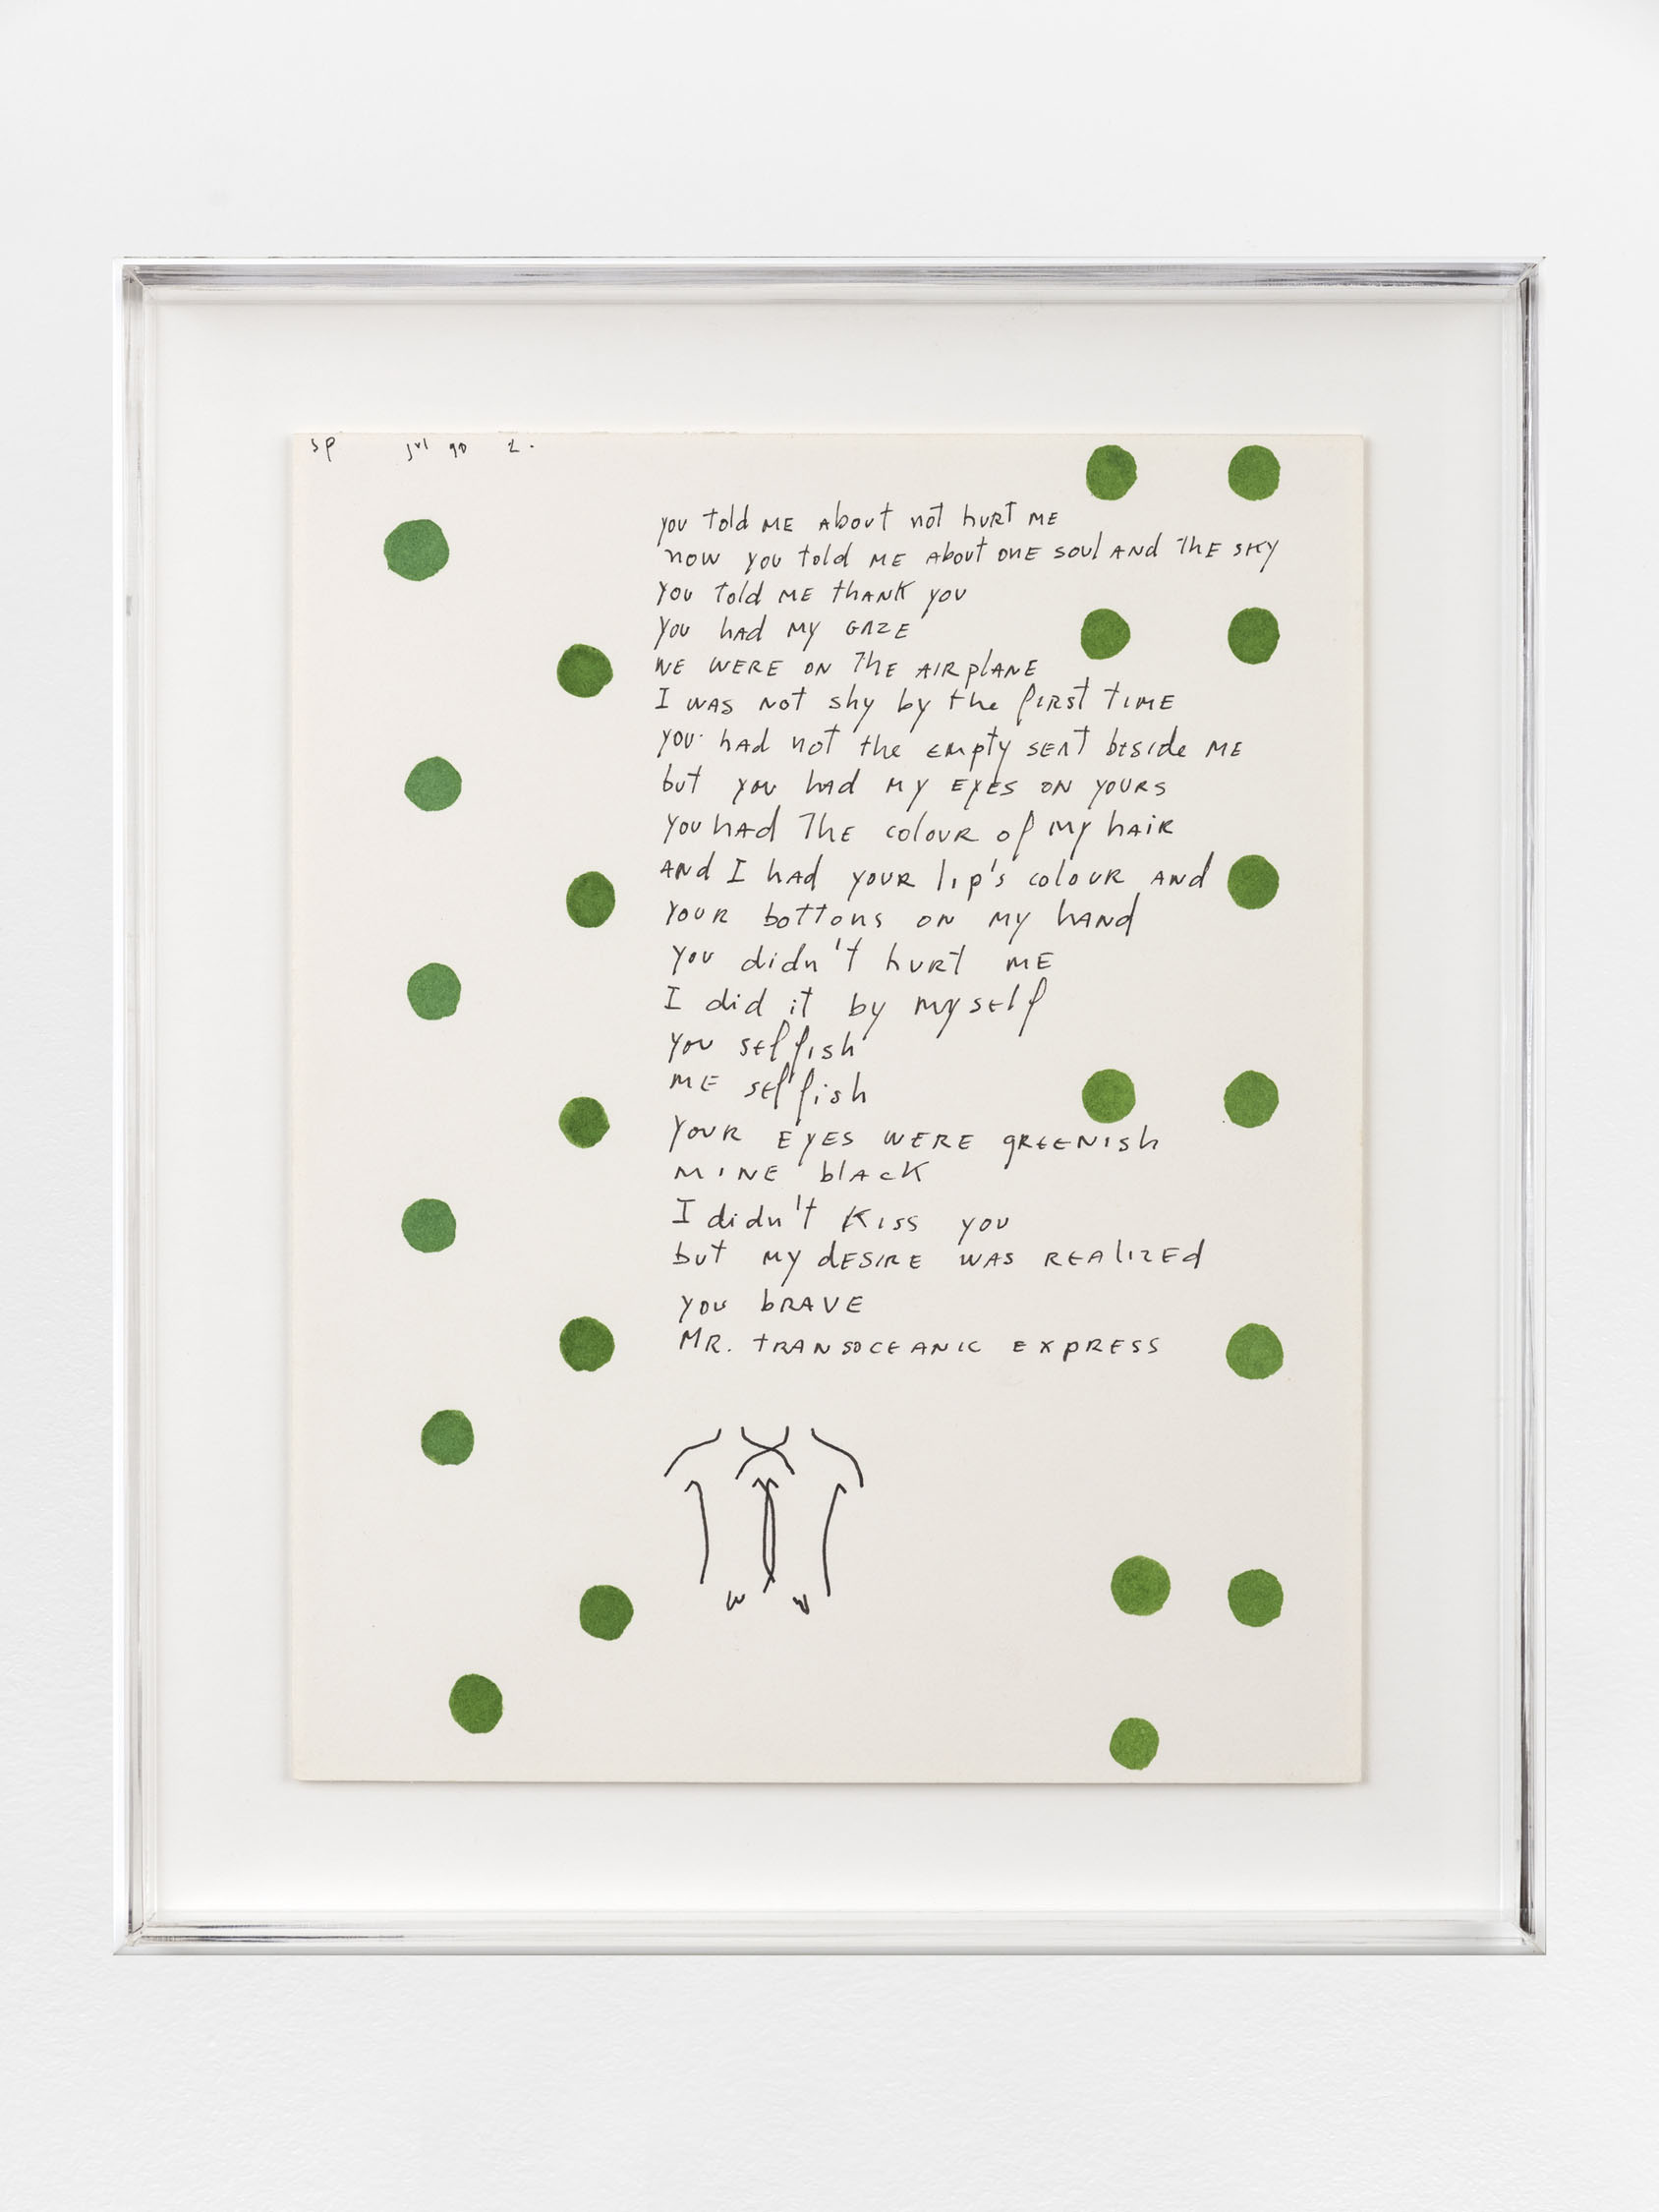 sp jul 90 2.
you told ME About not hurt ME
now you told ME About ONE soul AND ThE SKY
you told ME thANK you
you hAd My GAZE
WE WERE ON ThE AIRplANE
I WAS Not shy by the fIRSt TIME
you hAd not the Empty SEAT bEside ME
but you hAd My EyES ON YOURS
you hAd ThE coloUR of My hAiR
ANd I hAd YOUR lip's coloUR ANd
YOUR bottons ON My hANd
you didn't huRt ME
I did it by MysElf
you sElfish
ME sElfish
YOUR EyES WERE gREENish
MINE blAcK
I didn't KISS you
but My dESIRE WAS REAlIZEd
you bRAVE
MR. tRANSOCEANIC EXpRESS